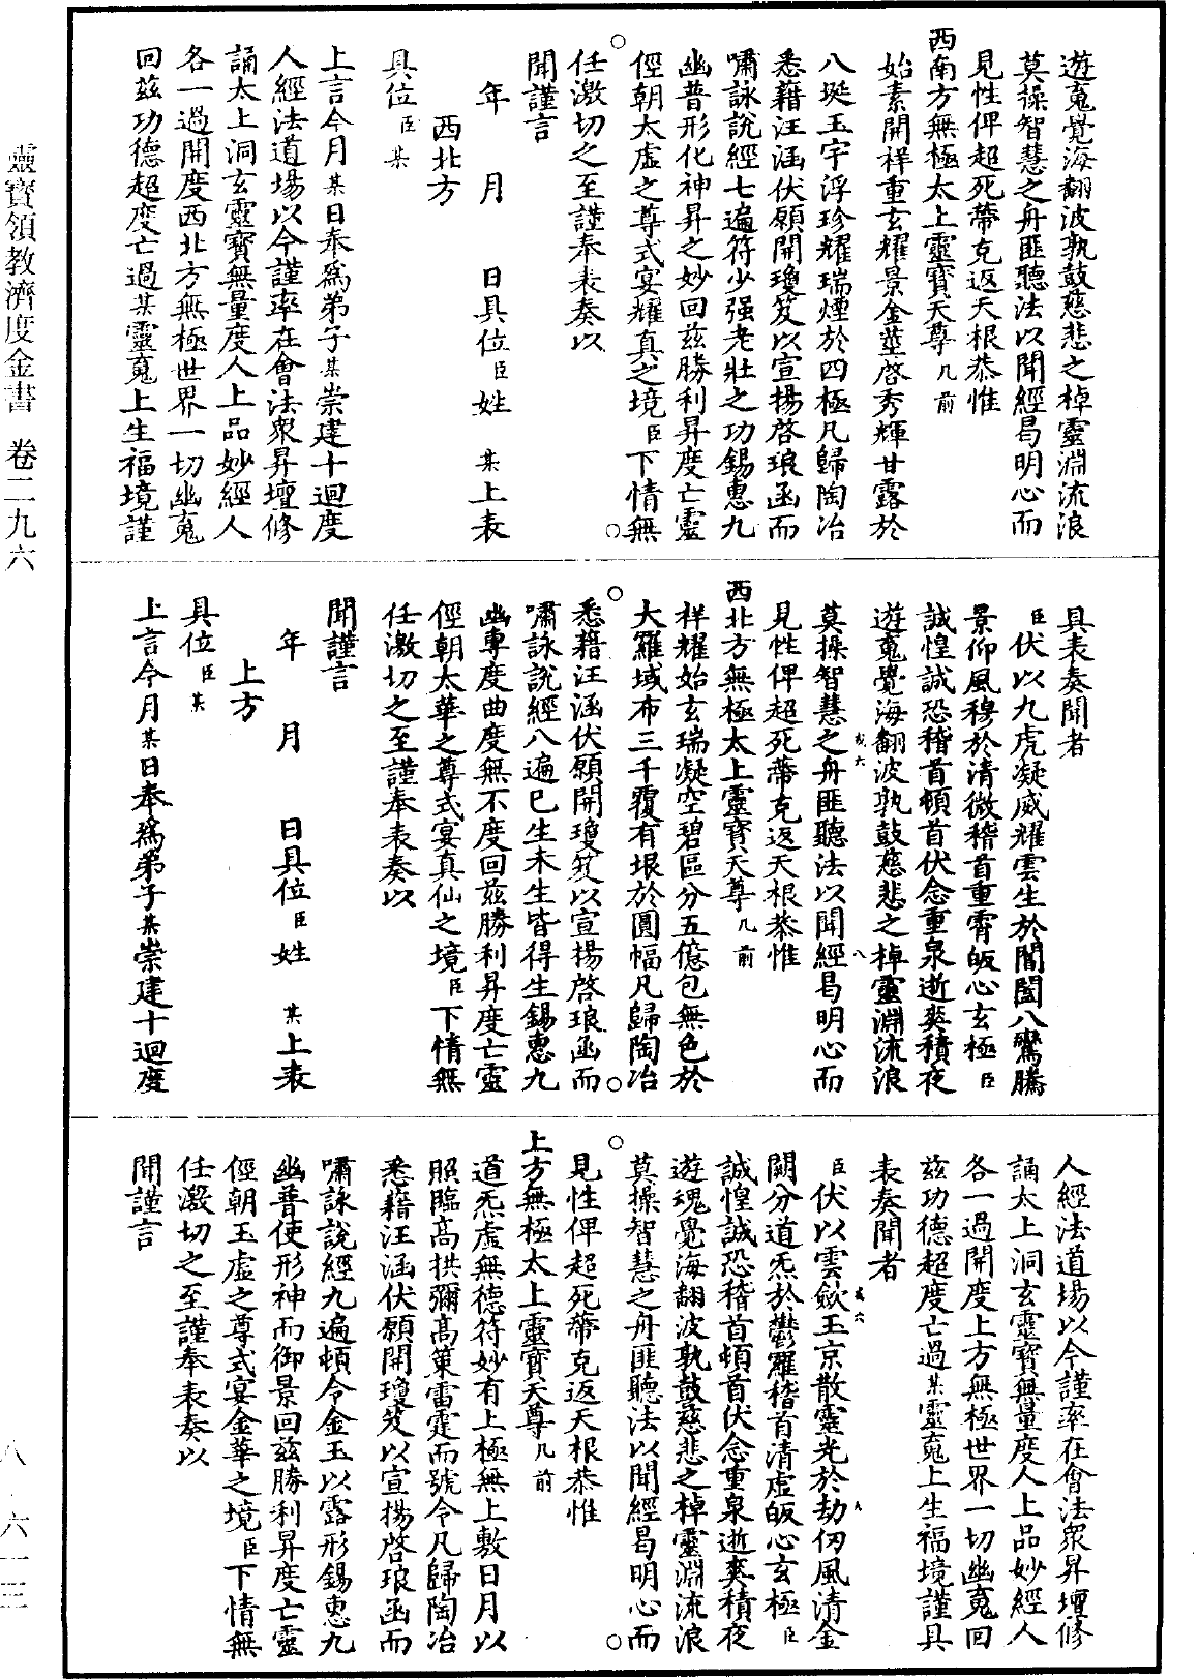 靈寶領教濟度金書 卷二九六
遊䰟覺海翻波孰鼓慈悲之棹靈淵流浪
莫操智慧之舟匪聽法以聞經曷明心而
見性俾超死蔕克返天根恭惟
西南方無極太上靈寶天尊几前
始素開祥重玄耀景金莖啓秀輝甘露於
八埏玉宇浮珍耀瑞煙於四極凡歸陶冶
悉藉汪涵伏願開瓊笈以宣揚啓琅函而
嘯詠說經七遍符少强老壯之功錫惠九
幽普形化神昇之妙回茲勝利昇度亡靈
俓朝太虛之尊式宴耀真之境臣下情無
任激切之至謹奉表奏以
聞謹言
年 月 日具位臣姓 某上表
西北方
具位臣某
上言今月某日奉爲弟子某崇建十迴度
人經法道場以今謹率在會法衆昇壇修
誦太上洞玄靈寶無量度人上品妙經人
各一過開度西北方無極世界一切幽䰟
回茲功德超度亡過某靈䰟上生福境謹
具表奏聞者
臣伏以九虎凝威耀雲生於閶闔八鸞騰
景仰風穆於清微稽首重霄皈心玄極臣
誠惶誠恐稽首頓首伏念重泉逝爽積夜
遊䰟覺海翻波孰鼓慈悲之棹靈淵流浪
莫操智慧之舟匪聽法以聞經曷明心而
見性俾超死蔕克返天根恭惟
西北方無極太上靈寶天尊几前
祥耀始玄瑞凝空碧區分五億包無色於
大羅域布三千覆有垠於圓幅凡歸陶冶
悉藉汪涵伏願開瓊笈以宣揚啓琅函而
嘯詠說經八遍已生未生皆得生錫惠九
幽專度曲度無不度回茲勝利昇度亡靈
俓朝太華之尊式宴真仙之境臣下情無
任激切之至謹奉表奏以
聞謹言
年 月 日具位臣姓 某上表
上方
具位臣某
上言今月某日奉爲弟子某崇建十迴度
人經法道場以今謹率在會法衆昇壇修
誦太上洞玄靈寶無量度人上品妙經人
各一過開度上方無極世界一切幽䰟回
茲功德超度亡過某靈䰟上生福境謹具
表奏聞者
臣伏以雲歛玉京散靈光於劫仞風清金
闕分道炁於鬱羅稽首清虛皈心玄極臣
誠惶誠恐稽首頓首伏念重泉逝爽積夜
遊魂覺海翻波孰鼓慈悲之棹靈淵流浪
莫操智慧之舟匪聽法以聞經曷明心而
見性俾超死蔕克返天根恭惟
上方無極太上靈寶天尊几前
道炁虛無德符妙有上極無上敷日月以
照臨高拱彌高策雷霆而號令凡歸陶冶
悉藉汪涵伏願開瓊笈以宣揚啓琅函而
嘯詠說經九遍頓令金玉以露形錫惠九
幽普使形神而御景回茲勝利昇度亡靈
俓朝玉虛之尊式宴金華之境臣下情無
任激切之至謹奉表奏以
聞謹言
八·六一三